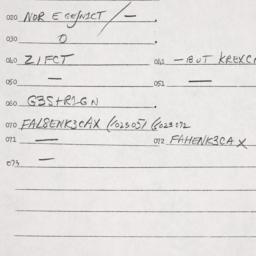 020 NOR E GE/NICT /—.
030 O.
040 ZIFCT 041 — BUT KREXC
050 — 051 —
060 G3S+R1GN.
070 FAL8ENK3CAX (102505) (8023072
071 — 072 FAHENK3CAX
073 —